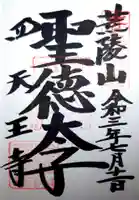 荒陵山
令和三年七月
聖徳太子
四天王寺